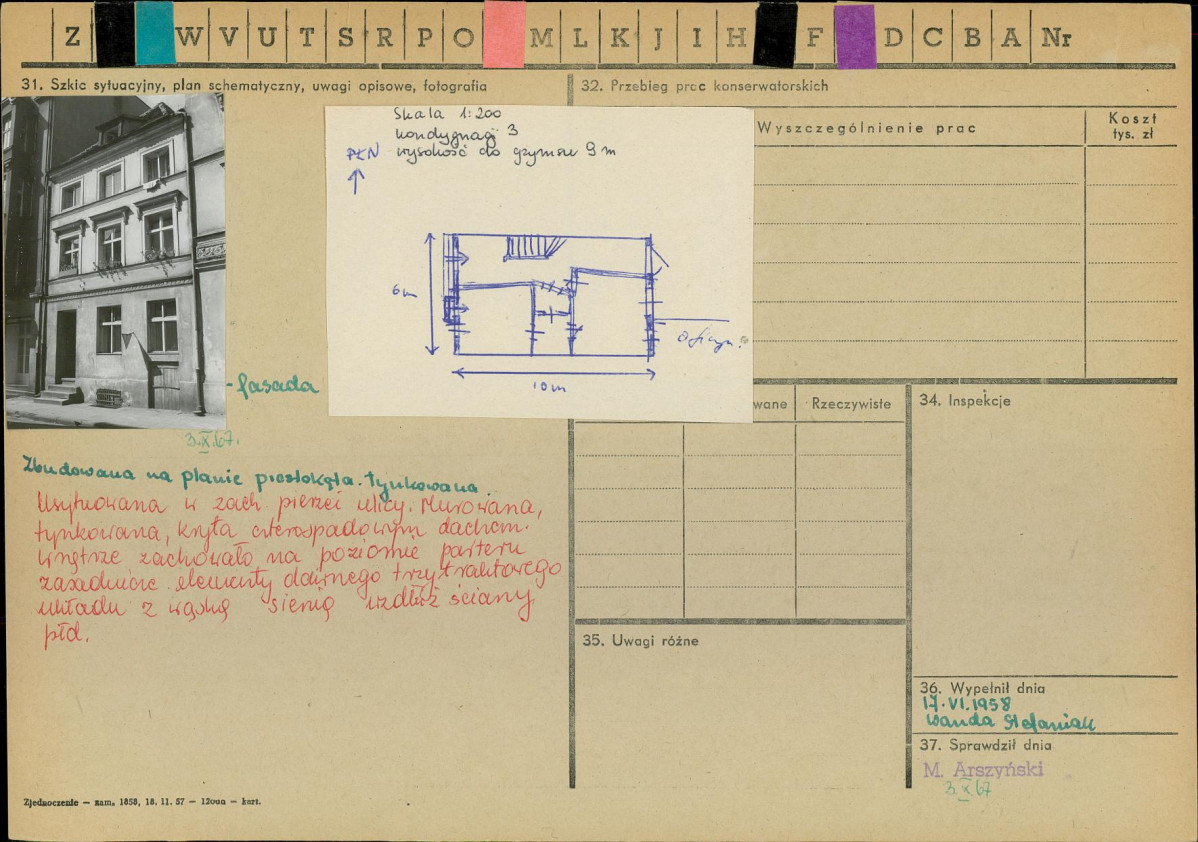 Z W V U T S R P O M L K J I H F D C B A Nr
31. Szkic sytuacyjny, plan schematyczny, uwagi opisowe, fotografia
32. Przebieg prac konserwatorskich
Wyszczególnienie prac
Koszt
tys. zł
Skala 1:200
kondygnacji 3
PŁN wysokość do gzymsu 9 m
6m
10m
- fasada
3.X.67.
Zbudowana na planie prostokąta. tynkowana.
Usytuowana w zach. pierzei ulicy. Murowana,
tynkowana, kryta czterospadowym dachem.
Wnętrze zachowało na poziomie parteru
zasadnicze elementy dawnego trzytraktowego
układu z wąską sienią wzdłuż ściany
płd.
wane
Rzeczywiste
34. Inspekcje
35. Uwagi różne
36. Wypełnił dnia
17.VI.1958
Wanda Stefaniak
37. Sprawdził dnia
M. Arszyński
3.X.67
Zjednoczenie — zam. 1858, 18. 11. 57 — 12000 — kart.